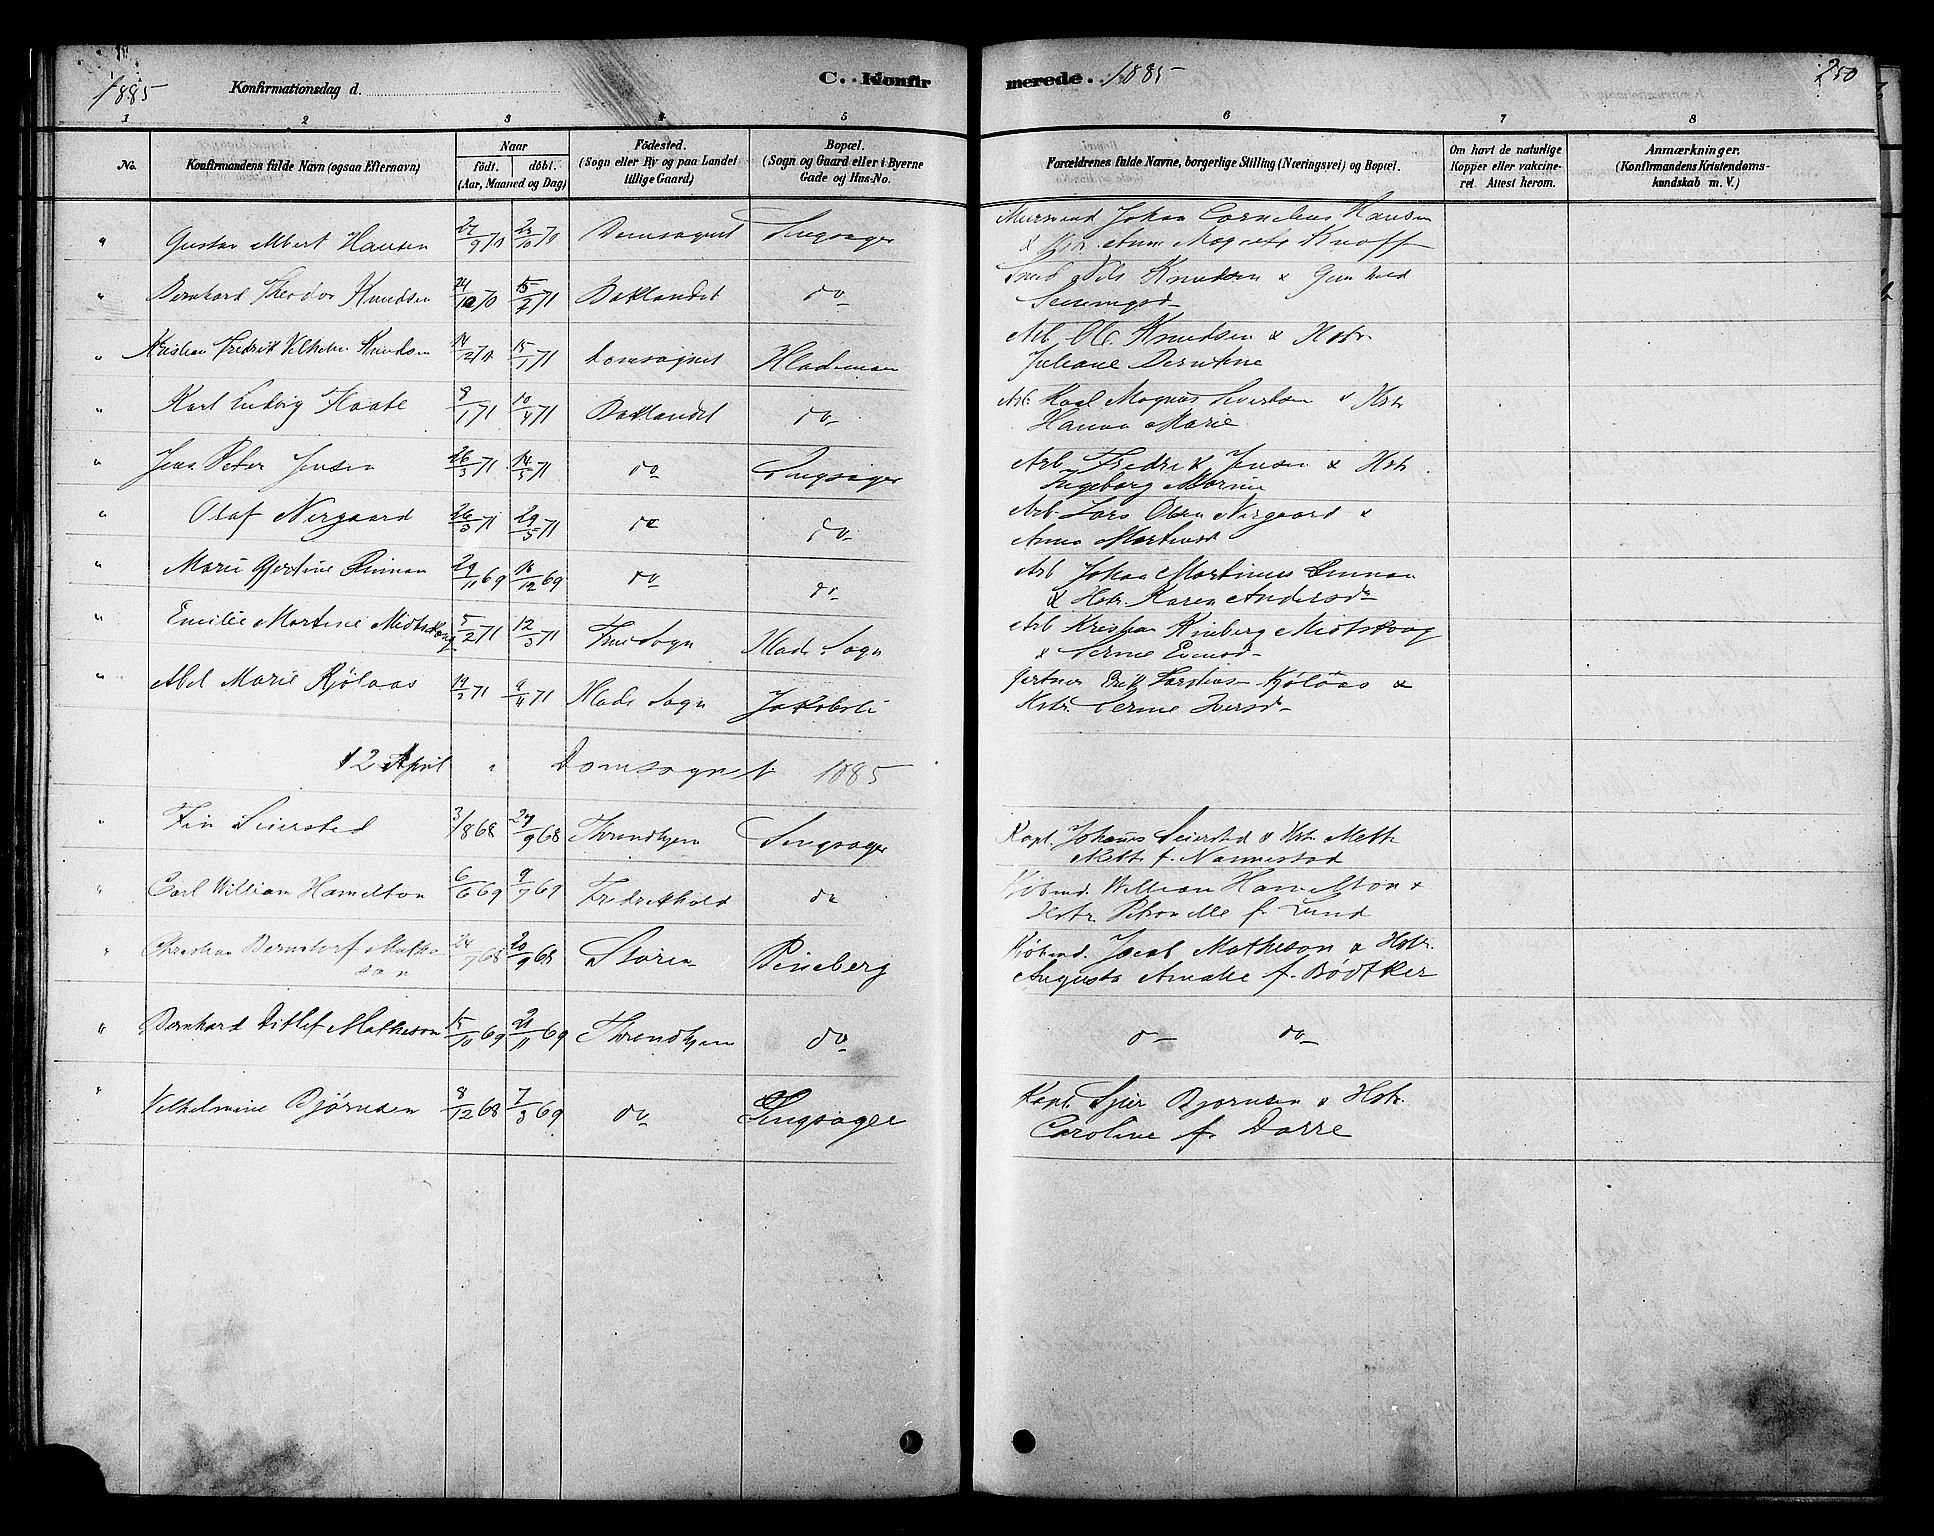 1885 Konfirmationsdag d. C. Konfirmerede. 1885 250
1 2 3 4 5 6 7 8
No. Konfirmandens fulde Navn (ogsaa Efternavn) Naar födt. döbt. (Aar, Maaned og Dag) Födested. (Sogn eller By og paa Landet tillige Gaard) Bopæl. (Sogn og Gaard eller i Byerne Gade og Hus-No. Forældrenes fulde Navne, borgerlige Stilling (Næringsvei) og Bopæl. Om havt de naturlige Kopper eller vakcineret. Attest herom. Anmærkninger. (Konfirmandens Kristendomskundskab m. V.)
" Gustav Albert Hansen 27/9 70 23/10 70 Domsognet Singsager Murmend Johan Cornelius Hansen
& Hstr. Anne Magrete Knoff
" Bernhard Theodor Knudsen 24/10 70 15/2 71 Baklandet do Smed Nils Knudsen & Gunhild
" Kristian Fredrik Vilhelm Knudsen 14/12 70 15/1 71 Domsognet Hlademoen Arb. Ole Knudsen & Hstr.
Juliane Berntine
" Karl Ludvig Flaate 8/1 71 10/4 71 Baklandet do Arb. Karl Magnus Sivertsen & Hstr
Hanna Marie
" Jens Peter Jensen 26/3 71 14/5 71 do Singsager Arb Fredrik Jensen & Hstr.
Ingeborg Marie
" Olaf Nergaard 26/3 71 29/5 71 do do Arb Lars Olsen Nergaard &
Anna Martinsd
" Marie Bertine Rinnan 29/11 69 19/12 69 do do Arb Johan Martinus Rinnan
& Hstr. Karen Andersd
" Emilie Martine Midtskoug 5/2 71 12/3 71 Fruesogn Hlade Sogn Arb Kristian Kineberg Midtskoug
& Serine Evensd
" Abel Marie Kjølaas 19/2 71 9/4 71 Hlade Sogn Jakobsli Gertner Erik Larsen Kjølaas &
Hstr. Serine Iversd
12 April " Domsognet 1885
" Fin Seiersted 3/8 68 27/9 68 Throndhjem Singsager Kapt. Johannes Seiersted & Hstr. Mette
Mette f. Nannestad
" Carl William Hamelton 6/6 69 9/7 69 Fredrikhald do Kjöbmd. William Hamelton &
Hstr Petronelle f. Lund
" Christian Berndtorf Mathe
son 24/7 68 20/9 68 Støren Bineberg Kjöbmd. Jacob Matheson & Hstr.
Augusta Amalie f. Bödtker
" Bernhard Ditlef Matheson 15/10 69 21/11 69 Throndhjem do do do
" Vilhelmine Bjørnsen 8/12 68 7/3 69 do Singsager Kapt. Bjørnsen & Hstr.
Caroline f. Darre